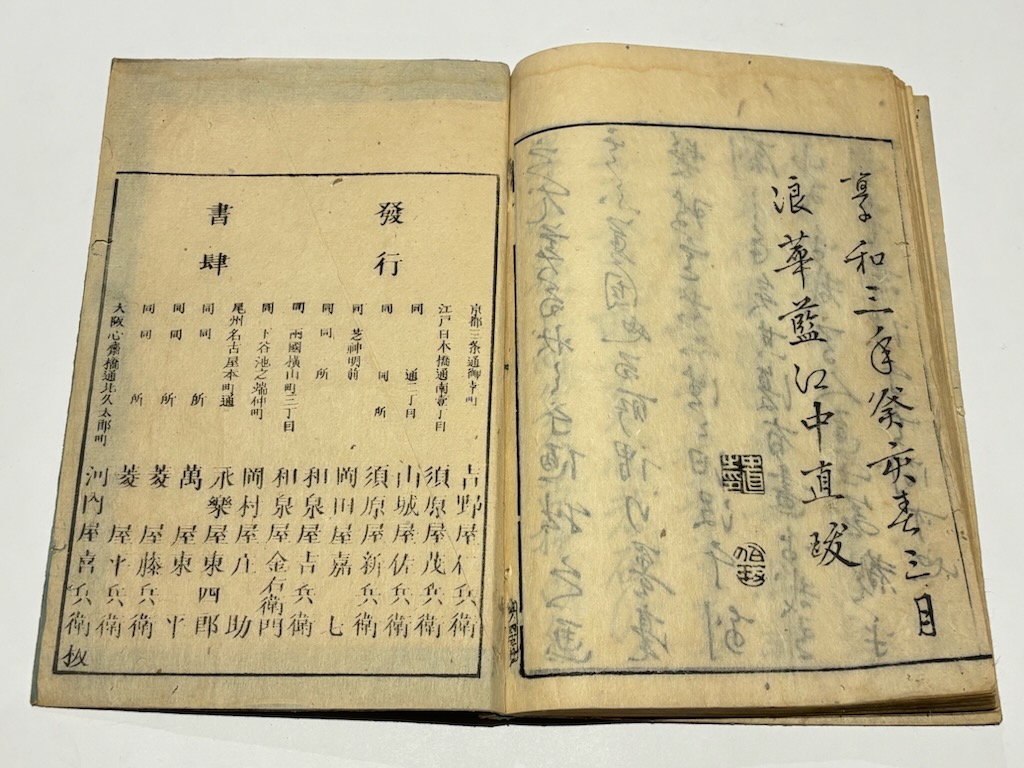 享和三年癸亥春三月
浪華藍江中直跋
發行
書肆
京都三条通御幸町 吉野屋仁兵衛
江戸日本橋通南壹丁目 須原屋茂兵衛
同 通二丁目 山城屋佐兵衛
同 同所 須原屋新兵衛
同 芝神明前 岡田屋嘉七
同 同所 和泉屋吉兵衛
同 兩國横山町三丁目 和泉屋金右衛門
同 下谷池之端仲町 岡村屋庄助
尾州名古屋本町通 永樂屋東四郎
同 同所 萬屋東平
同 同所 菱屋藤兵衛
同 同所 菱屋平兵衛
大阪心齋橋通北久太郎町 河内屋喜兵衛板